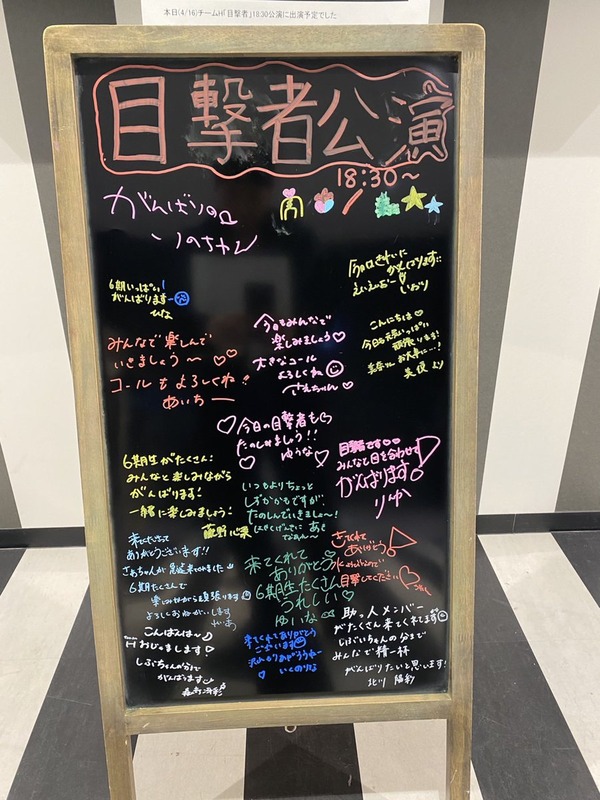 本日(4/16)チームH「目撃者」18:30公演に出演予定でした
目撃者公演
18:30〜
がんばりのΩ
いのちゃん
今日もきれいに
がんばります
えいえいおー!
いおり
6期いっぱい!
がんばりますー
ひな
今日もみんなで
楽しみましょう♡
大きなコール
よろしくね
さえちゃん♡
こんにちは♥
今日も元気いっぱい
頑張ります!
お大事に〜!
美優 より
みんなで楽しんで
いきましょう〜♡♡
コールもよろしくね!
めいちー
♡今日の目撃者も
たのしみましょう!!
ゆうな
目撃者です♡♡
みんなと目を合わせて
がんばります!
りゆ
6期生がたくさん!
みんなと楽しみながら
がんばります!
一緒に楽しみましょう!
藤野心葉
いつもよりちょっと
しずかかもですが、
たのしんでいきましょ〜!
来てくださって
ありがとうございます!!
6期たくさんで
よろしくおねがいします
来てくれて
ありがとう♡
6期生たくさん
うれしい♡
ゆいな
きてくれて
ありがとう!
目撃してください♡
こんばんは〜♪
Hおじゃまします♪
しぶちゃんの分まで
がんばります
来てくれてありがとう
ございます
いくのりな
助っ人メンバー
がたくさん来てくれてます
じばいちゃんの分まで
みんなで精一杯
がんばりたいと思います!
北川 陽彩